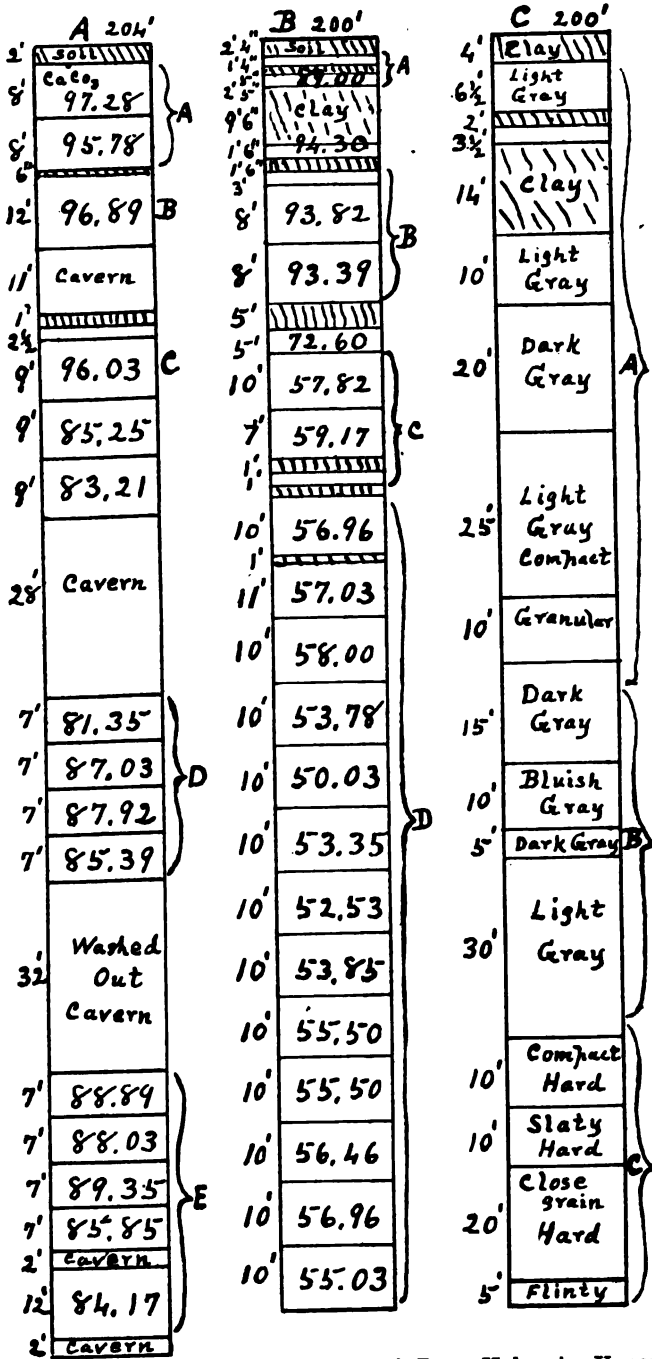 A 204'
2' Soil
8' CaCO3 97.28
A
8' 95.78
6"
12' 96.89 B
11' Cavern
1'
2½
9' 96.03 C
9' 85.25
9' 83.21
28' Cavern
7' 81.35
7' 87.03
D
7' 87.92
7' 85.39
32' Washed
Out
Cavern
7' 88.89
7' 88.03
7' 89.35
E
7' 85.85
2' Cavern
12' 84.17
2' Cavern
B 200'
2'4" Soil
1'4"
A
2'5"
9'6" Clay
1'6" 94.30
1'6"
3'
8' 93.82
B
8' 93.39
5'
5' 72.60
10' 57.82
C
7' 59.17
1'
1'
10' 56.96
1'
11' 57.03
10' 58.00
10' 53.78
10' 50.03
D
10' 53.35
10' 52.53
10' 53.85
10' 55.50
10' 55.50
10' 56.46
10' 56.96
10' 55.03
C 200'
4' Clay
6½' Light
Gray
2'
3½'
14' Clay
10' Light
Gray
20' Dark
Gray
A
25' Light
Gray
Compact
10' Granular
15' Dark
Gray
10' Bluish
Gray
5' Dark Gray B
30' Light
Gray
10' Compact
Hard
10' Slaty
Hard
C
20' Close
grain
Hard
5' Flinty